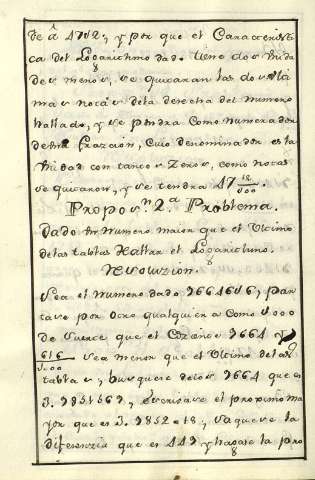 te â 4782, y por que el Caracteristi
ca del Logarithmo dado tiene dos Unida
des menos, se quitaran las dos ulti
mas notas dela derecha del numero
hallado, y se pondra como numerador
de una Frazcion, cuio denominador es la
Unidad con tantos Zeros, como notas
se quitaron, y se tendra 47 82/100.
Propos.n 2.a Problema.
Dado un numero maior que el Ultimo
delas tablas Hallar el Logarithmo.
Resoluzion.
Sea el numero dado 9664616, par
tase por otro qualquiera como 1000
de suerte que el Cociente 9664 y
616/1000 sea menor que el Ultimo delas
tablas, busquese delos 9664 que es
3. 9851569, escrivase el proximo ma
yor que es 3. 9852018, saquese la
diferenzia que es 449 y hagase la pro